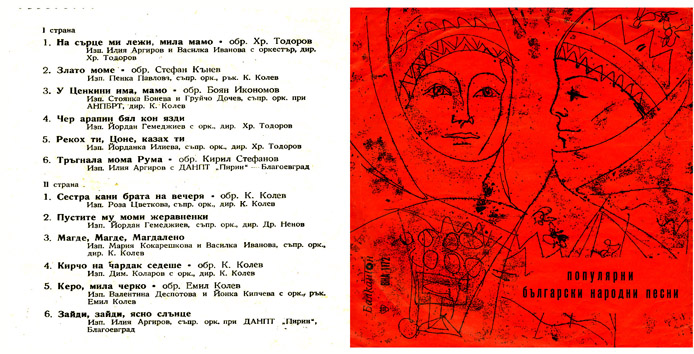 I страна
1. На сърце ми лежи, мила мамо • обр. Хр. Тодоров
Изп. Илия Аргиров и Василка Иванова с оркестър, дир.
Хр. Тодоров
2. Злато моме • обр. Стефан Кънев
Изп. Пенка Павлова, съпр. орк., рък. К. Колев
3. У Ценкини има, мамо • обр. Боян Икономов
Изп. Стоянка Бонева и Груйчо Дочев, съпр. орк. при
АНПБРТ, дир. К. Колев
4. Чер арапин бял кон язди
Изп. Йордан Гемеджиев с орк., дир. Хр. Тодоров
5. Рекох ти, Цоне, казах ти
Изп. Йорданка Илиева, съпр. орк., дир. Хр. Тодоров
6. Тръгнала мома Рума • обр. Кирил Стефанов
Изп. Илия Аргиров с ДАНПТ „Пирин" — Благоевград
II страна
1. Сестра кани брата на вечеря • обр. К. Колев
Изп. Роза Цветкова, съпр. орк., дир. К. Колев
2. Пустите му моми жеравненки
Изп. Йордан Гемеджиев, съпр. орк., дир. Др. Ненов
3. Магде, Магде, Магдалено
Изп. Мария Кокарешкова и Василка Иванова, съпр. орк.,
дир. К. Колев
4. Кирчо на чардак седеше • обр. К. Колев
Изп. Дим. Коларов с орк., дир. К. Колев
5. Керо, мила черко • обр. Емил Колев
Изп. Валентина Деспотова и Йонка Кипчева с орк., рък.
Емил Колев
6. Зайди, зайди, ясно слънце
Изп. Илия Аргиров, съпр. орк. при ДАНПТ „Пирин",
Благоевград
Балкантон
популярни
български народни песни